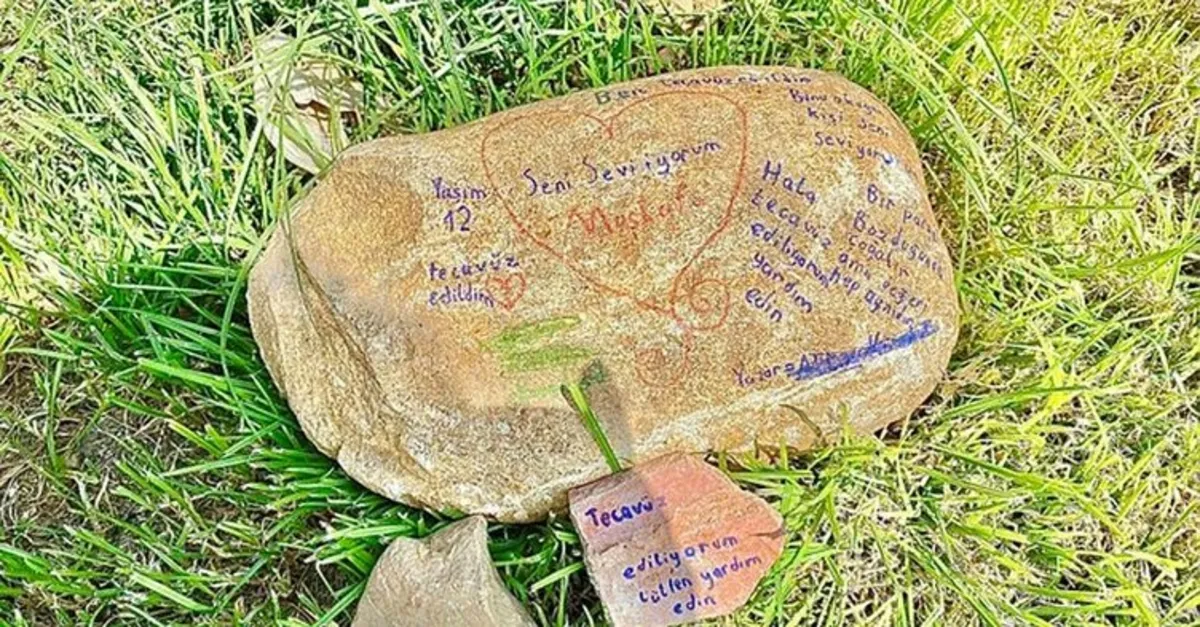 Ben tecavüz edildim
Bunu okuyan
kişi seni
seviyorum
Yaşım
12
Seni Seviyorum
Mustafa
tecavüz
edildim
Hala
tecavüz
ediliyorum
yardım
edin
Bir para
Bozduğunda
çoğalır
ama değeri
hep aynıdır
Yazar
Tecavüz
ediliyorum
lütfen yardım
edin